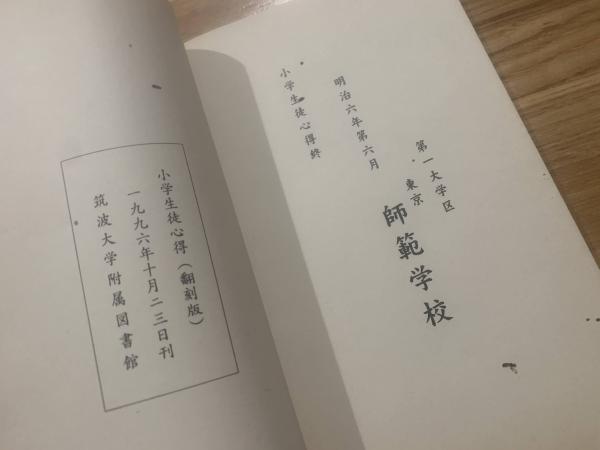 小学生徒心得終
明治六年第六月
第一大学区
東京
師範学校
小学生徒心得(翻刻版)
一九九六年十月二三日刊
筑波大学附属図書館